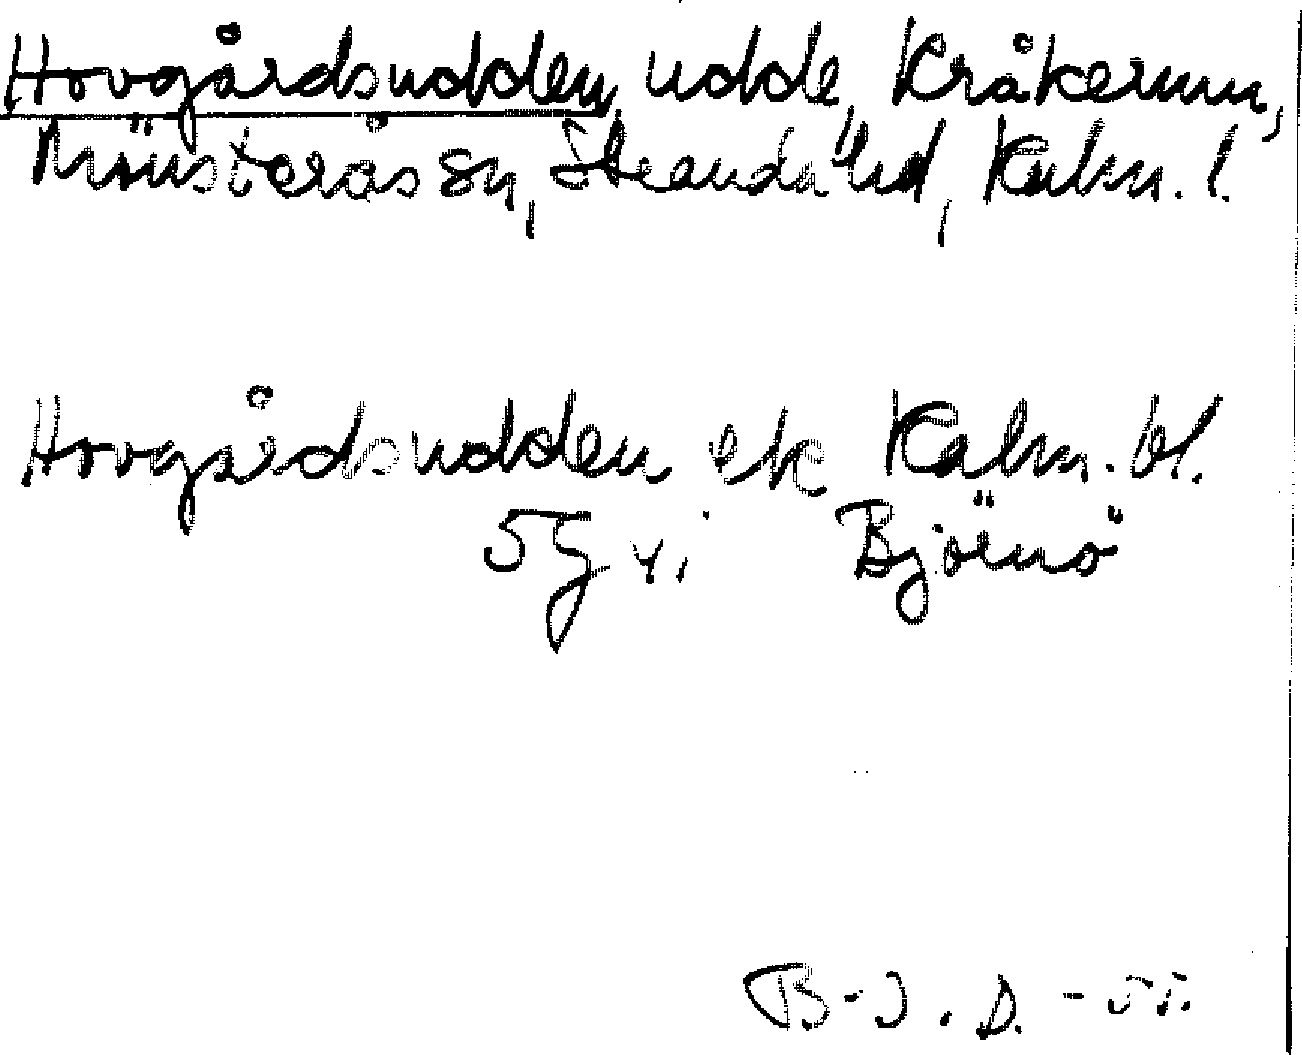 Hovgårdsudden, udde, Kråkerum,
Mönsterås sn, Stranda hd, Kalm. l.
Hovgårdsudden ek Kalm. bl.
5g v. Björnö
B-J. D. -55.